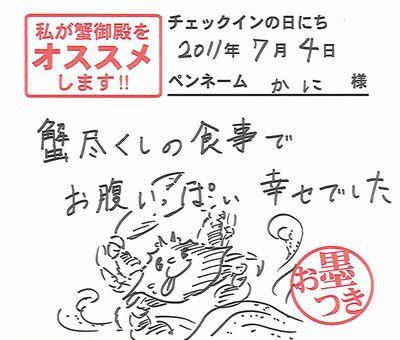 私が蟹御殿を
オススメ
します!!
チェックインの日にち
2011年7月4日
ペンネーム かに 様
蟹尽くしの食事で
お腹いっぱい 幸せでした
お墨つき